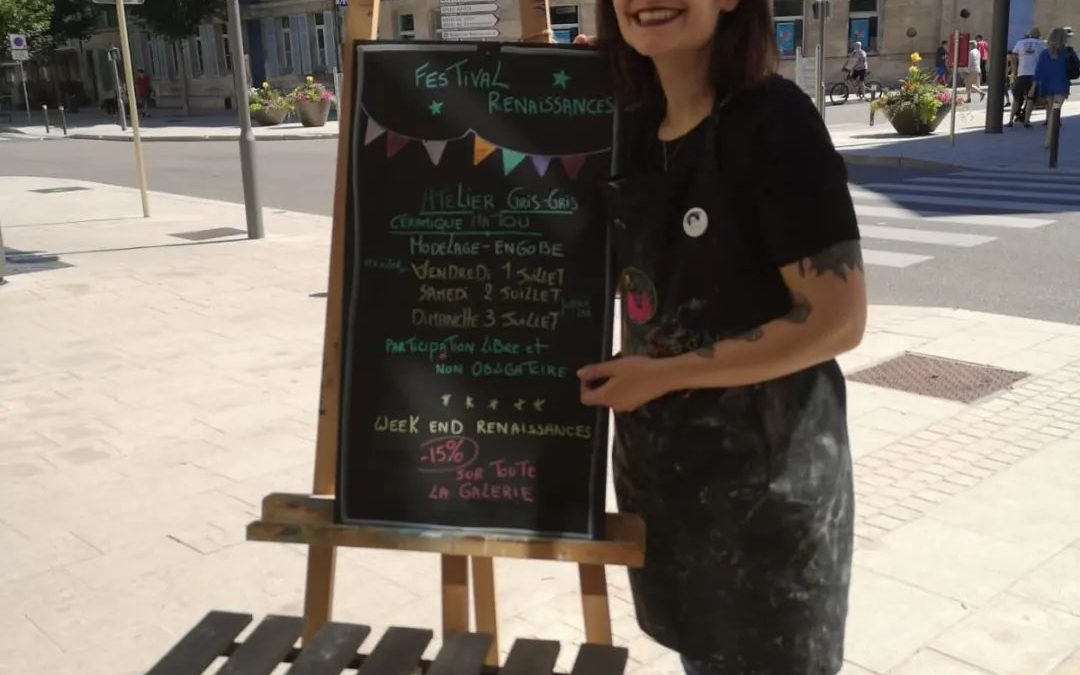 FESTIVAL
RENAISSANCES
ATELIER GRIS-GRIS
CÉRAMIQUE MATOU
MODELAGE - ENGOBE
VENDREDI 1 JUILLET
SAMEDI 2 JUILLET
DIMANCHE 3 JUILLET
PARTICIPATION LIBRE et
NON OBLIGATOIRE
WEEK END RENAISSANCES
-15%
SUR TOUTE
LA GALERIE